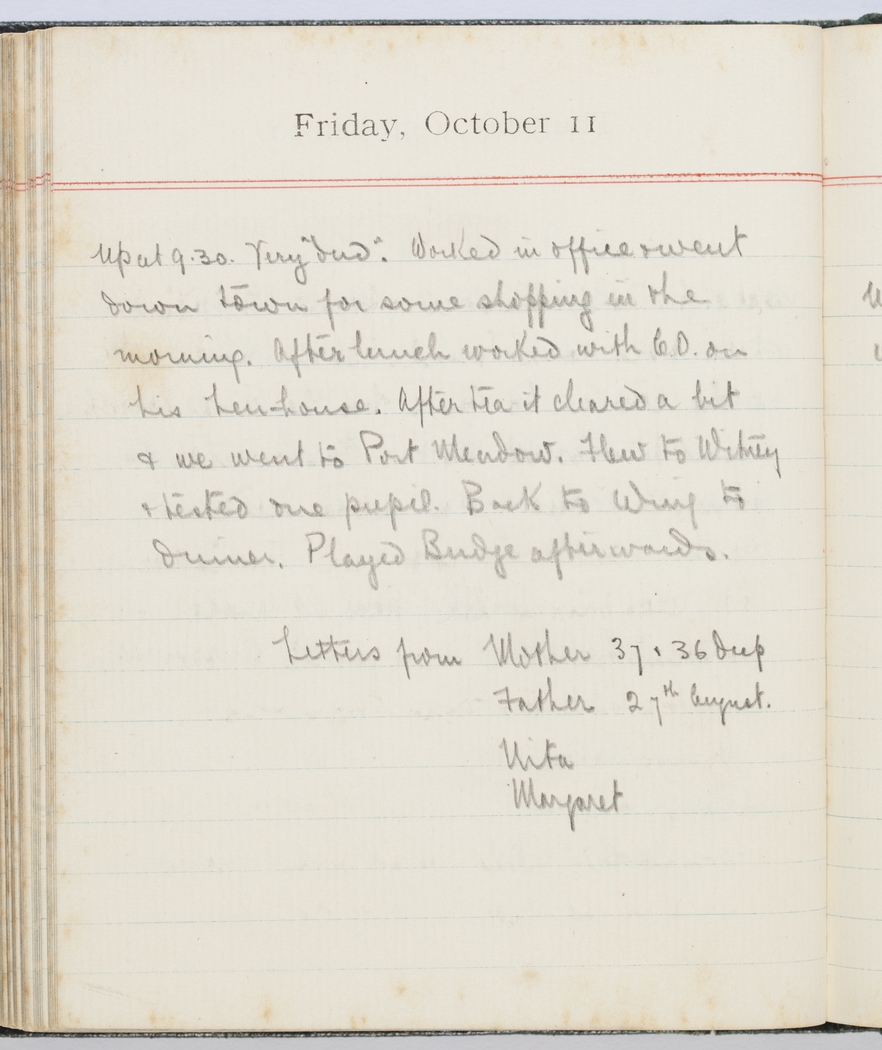 Friday, October 11
Up at 9.30. Very "dud". Worked in office & went
down town for some shopping in the
morning. After lunch worked with C.O. on
his hen-house. After tea it cleared a bit
& we went to Port Meadow. Flew to Witney
& tested one pupil. Back to Wing to
dinner. Played Bridge afterwards.
Letters from Mother 37 & 36 dup
Father 27th August.
Nita
Margaret